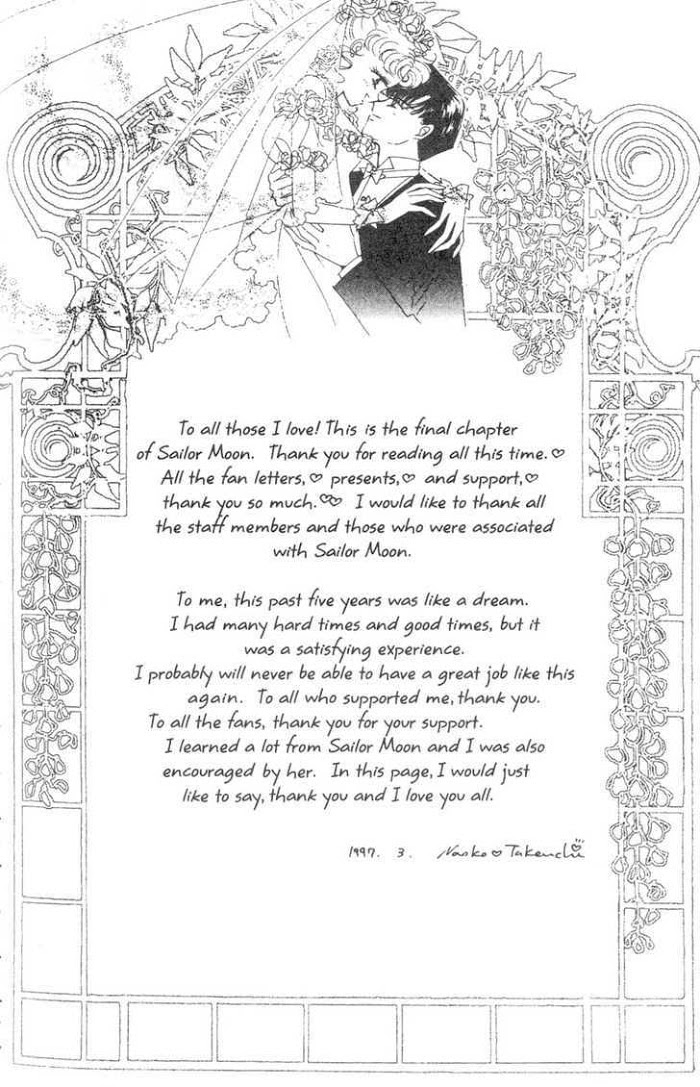 To all those I love! This is the final chapter
of Sailor Moon. Thank you for reading all this time.♡
All the fan letters,♡ presents,♡ and support,♡
thank you so much.♡♡ I would like to thank all
the staff members and those who were associated
with Sailor Moon.
To me, this past five years was like a dream.
I had many hard times and good times, but it
was a satisfying experience.
I probably will never be able to have a great job like this
again. To all who supported me, thank you.
To all the fans, thank you for your support.
I learned a lot from Sailor Moon and I was also
encouraged by her. In this page, I would just
like to say, thank you and I love you all.
1997. 3. Naoko♡Takeuchi